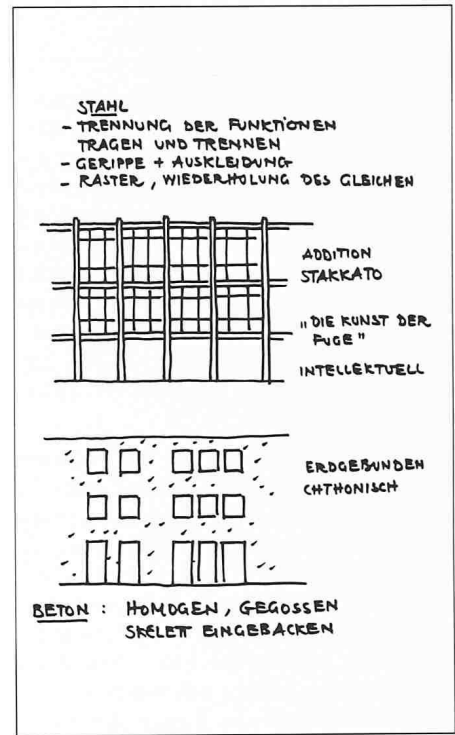 STAHL
- TRENNUNG DER FUNKTIONEN
TRAGEN UND TRENNEN
- GERIPPE + AUSKLEIDUNG
- RASTER, WIEDERHOLUNG DES GLEICHEN
ADDITION
STAKKATO
„DIE KUNST DER
FUGE"
INTELLEKTUELL
ERDGEBUNDEN
CHTHONISCH
BETON : HOMOGEN, GEGOSSEN
SKELETT EINGEBACKEN